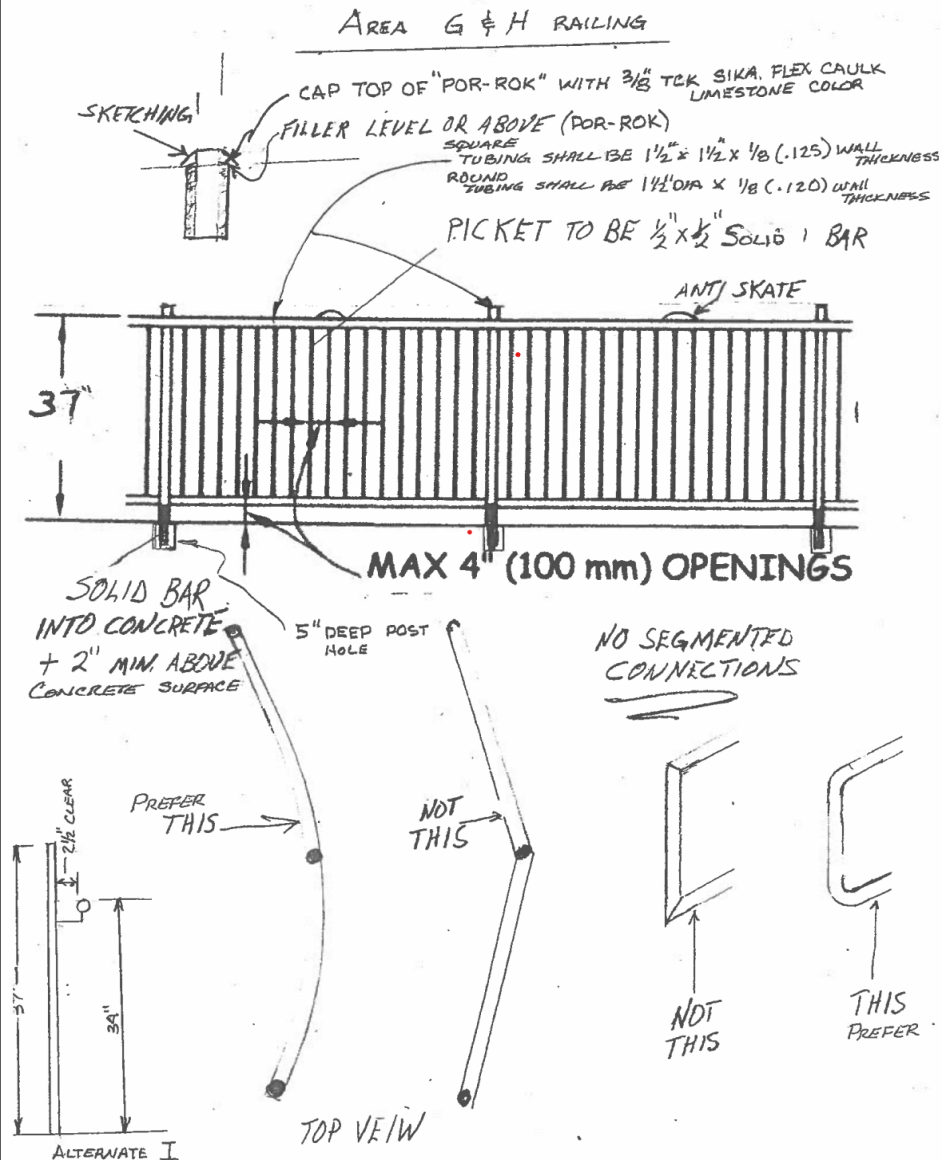 AREA G & H RAILING
CAP TOP OF "POR-ROK" WITH 3/8" TCK SIKA. FLEX CAULK
LIMESTONE COLOR
SKETCHING
FILLER LEVEL OR ABOVE (POR-ROK)
SQUARE
TUBING SHALL BE 1 1/2" x 1 1/2 x 1/8 (.125) WALL
THICKNESS
ROUND
TUBING SHALL BE 1 1/2" DIA X 1/8 (.120) WALL
THICKNESS
PICKET TO BE 1/2" x 1/2" SOLID BAR
ANTI SKATE
37"
MAX 4" (100 mm) OPENINGS
SOLID BAR
INTO CONCRETE
+ 2" MIN. ABOVE
CONCRETE SURFACE
5" DEEP POST
HOLE
NO SEGMENTED
CONNECTIONS
PREFER
THIS
NOT
THIS
2 1/2" CLEAR
37"
34"
NOT
THIS
THIS
PREFER
TOP VEIW
ALTERNATE I